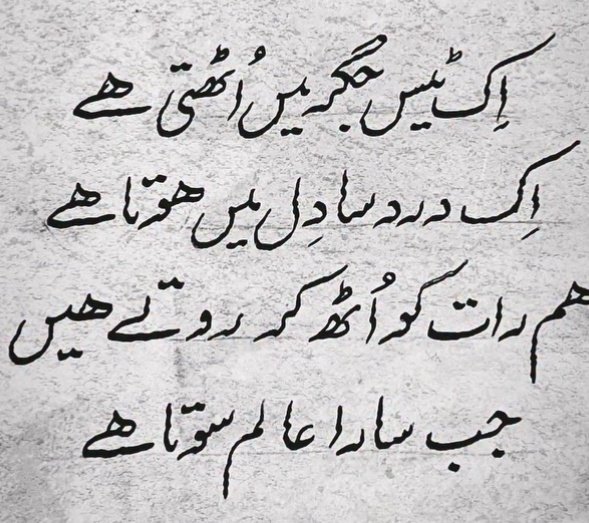 اِک ٹیس جگر میں اُٹھتی ھے
اِک درد سا دِل میں ھوتا ھے
ھم رات کو اُٹھ کر روتے ھیں
جب سارا عالم سوتا ھے